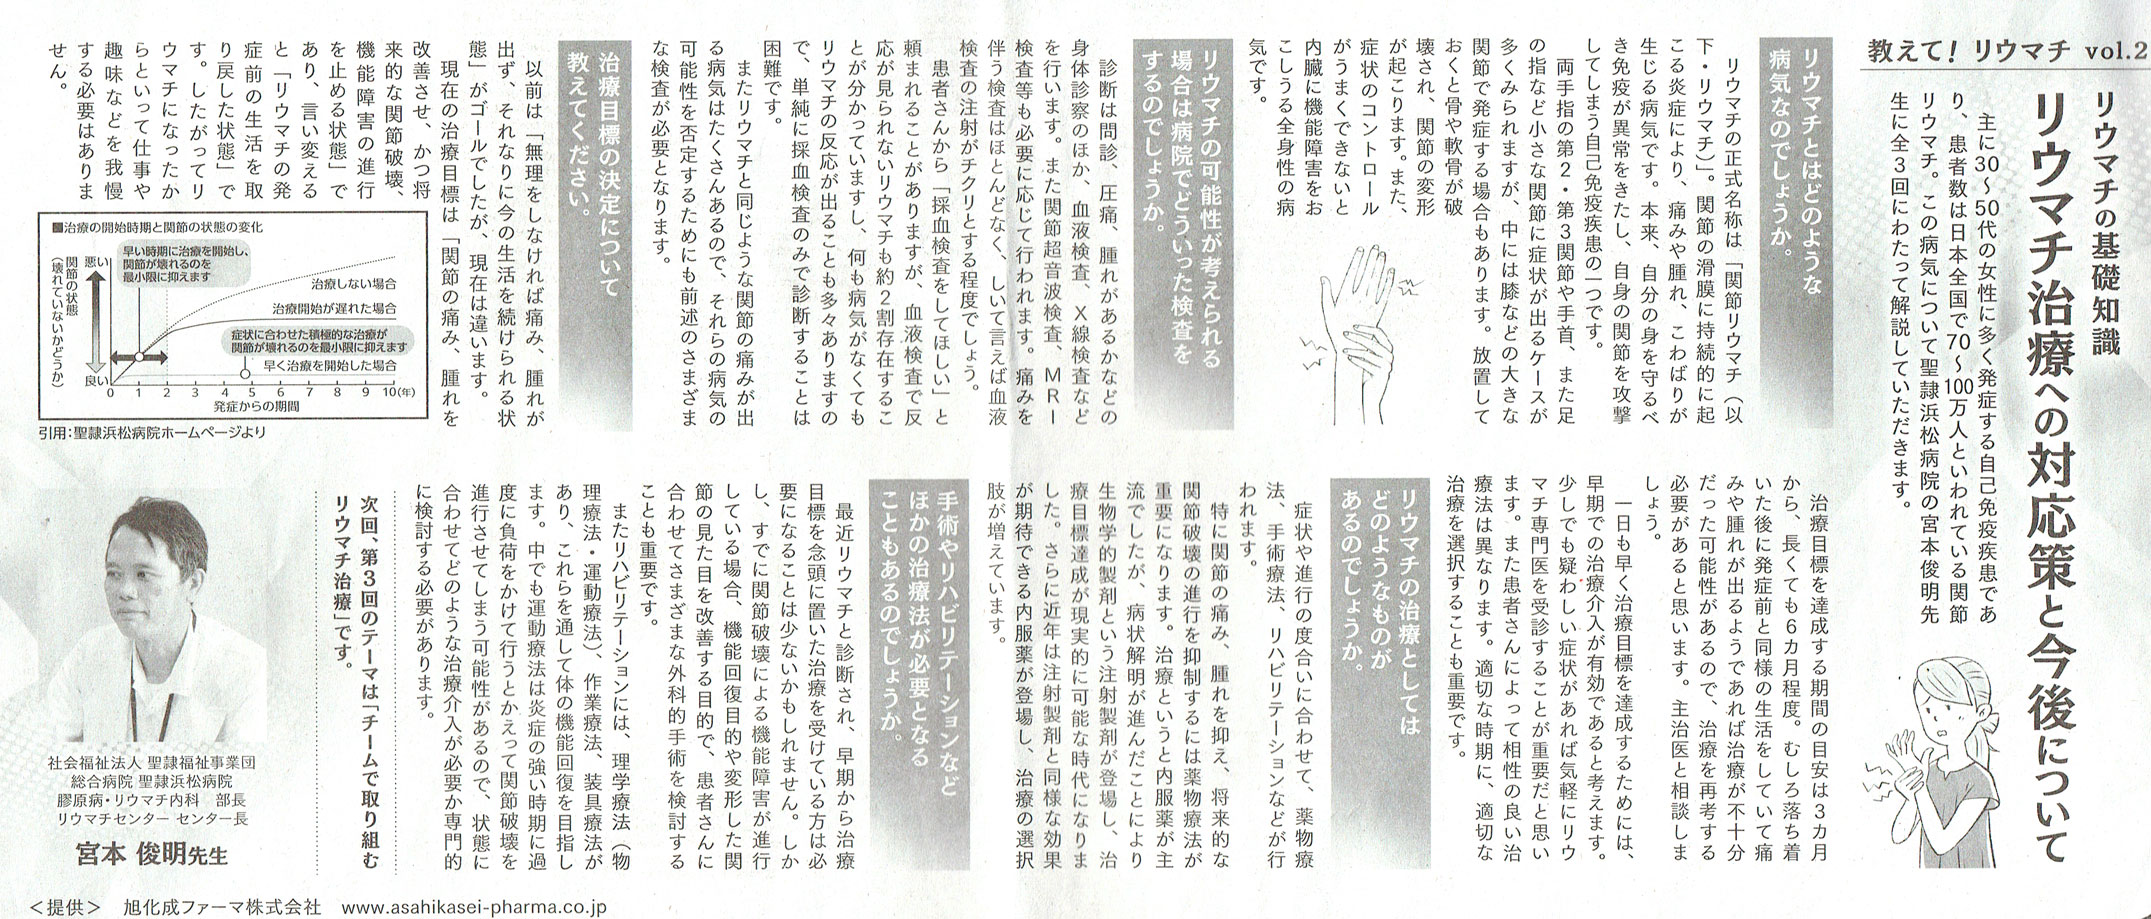 教えて！リウマチ vol.2
リウマチの基礎知識
リウマチ治療への対応策と今後について
主に30～50代の女性に多く発症する自己免疫疾患であ
り、患者数は日本全国で70～100万人といわれている関節
リウマチ。この病気について聖隷浜松病院の宮本俊明先
生に全３回にわたって解説していただきます。
リウマチとはどのような
病気なのでしょうか。
リウマチの正式名称は「関節リウマチ（以
下・リウマチ）」。関節の滑膜に持続的に起
こる炎症により、痛みや腫れ、こわばりが
生じる病気です。本来、自分の身を守るべ
き免疫が異常をきたし、自身の関節を攻撃
してしまう自己免疫疾患の一つです。
両手指の第２・第３関節や手首、また足
の指など小さな関節に症状が出るケースが
多くみられますが、中には膝などの大きな
関節で発症する場合もあります。放置して
おくと骨や軟骨が破
壊され、関節の変形
が起こります。また、
症状のコントロール
がうまくできないと
内臓に機能障害をお
こしうる全身性の病
気です。
リウマチの可能性が考えられる
場合は病院でどういった検査を
するのでしょうか。
診断は問診、圧痛、腫れがあるかなどの
身体診察のほか、血液検査、Ｘ線検査など
を行います。また関節超音波検査、ＭＲＩ
検査等も必要に応じて行われます。痛みを
伴う検査はほとんどなく、しいて言えば血液
検査の注射がチクリとする程度でしょう。
患者さんから「採血検査をしてほしい」と
頼まれることがありますが、血液検査で反
応が見られないリウマチも約２割存在するこ
とが分かっていますし、何も病気がなくても
リウマチの反応が出ることも多々ありますの
で、単純に採血検査のみで診断することは
困難です。
またリウマチと同じような関節の痛みが出
る病気はたくさんあるので、それらの病気の
可能性を否定するためにも前述のさまざま
な検査が必要となります。
治療目標の決定について
教えてください。
以前は「無理をしなければ痛み、腫れが
出ず、それなりに今の生活を続けられる状
態」がゴールでしたが、現在は違います。
現在の治療目標は「関節の痛み、腫れを
改善させ、かつ将
来的な関節破壊、
機能障害の進行
を止める状態」で
あり、言い変える
と「リウマチの発
症前の生活を取
り戻した状態」で
す。したがってリ
ウマチになったか
らといって仕事や
趣味などを我慢
する必要はありま
せん。
■治療の開始時期と関節の状態の変化
早い時期に治療を開始し、
関節が壊れるのを
最小限に抑えます
治療しない場合
治療開始が遅れた場合
症状に合わせた積極的な治療が
関節が壊れるのを最小限に抑えます
早く治療を開始した場合
悪い
良い
関節の状態
（壊れていないかどうか）
0 1 2 3 4 5 6 7 8 9 10(年)
発症からの期間
引用：聖隷浜松病院ホームページより
治療目標を達成する期間の目安は３カ月
から、長くても６カ月程度。むしろ落ち着
いた後に発症前と同様の生活をしていて痛
みや腫れが出るようであれば治療が不十分
だった可能性があるので、治療を再考する
必要があると思います。主治医と相談しま
しょう。
一日も早く治療目標を達成するためには、
早期での治療介入が有効であると考えます。
少しでも疑わしい症状があれば気軽にリウ
マチ専門医を受診することが重要だと思い
ます。また患者さんによって相性の良い治
療法は異なります。適切な時期に、適切な
治療を選択することも重要です。
リウマチの治療としては
どのようなものが
あるのでしょうか。
症状や進行の度合いに合わせて、薬物療
法、手術療法、リハビリテーションなどが行
われます。
特に関節の痛み、腫れを抑え、将来的な
関節破壊の進行を抑制するには薬物療法が
重要になります。治療というと内服薬が主
流でしたが、病状解明が進んだことにより
生物学的製剤という注射製剤が登場し、治
療目標達成が現実的に可能な時代になりま
した。さらに近年は注射製剤と同様な効果
が期待できる内服薬が登場し、治療の選択
肢が増えています。
手術やリハビリテーションなど
ほかの治療法が必要となる
こともあるのでしょうか。
最近リウマチと診断され、早期から治療
目標を念頭に置いた治療を受けている方は必
要になることは少ないかもしれません。しか
し、すでに関節破壊による機能障害が進行
している場合、機能回復目的や変形した関
節の見た目を改善する目的で、患者さんに
合わせてさまざまな外科的手術を検討する
ことも重要です。
またリハビリテーションには、理学療法（物
理療法・運動療法）、作業療法、装具療法が
あり、これらを通して体の機能回復を目指し
ます。中でも運動療法は炎症の強い時期に過
度に負荷をかけて行うとかえって関節破壊を
進行させてしまう可能性があるので、状態に
合わせてどのような治療介入が必要か専門的
に検討する必要があります。
次回、第３回のテーマは「チームで取り組む
リウマチ治療」です。
社会福祉法人 聖隷福祉事業団
総合病院 聖隷浜松病院
膠原病・リウマチ内科　部長
リウマチセンター センター長
宮本 俊明先生
＜提供＞　旭化成ファーマ株式会社　www.asahikasei-pharma.co.jp